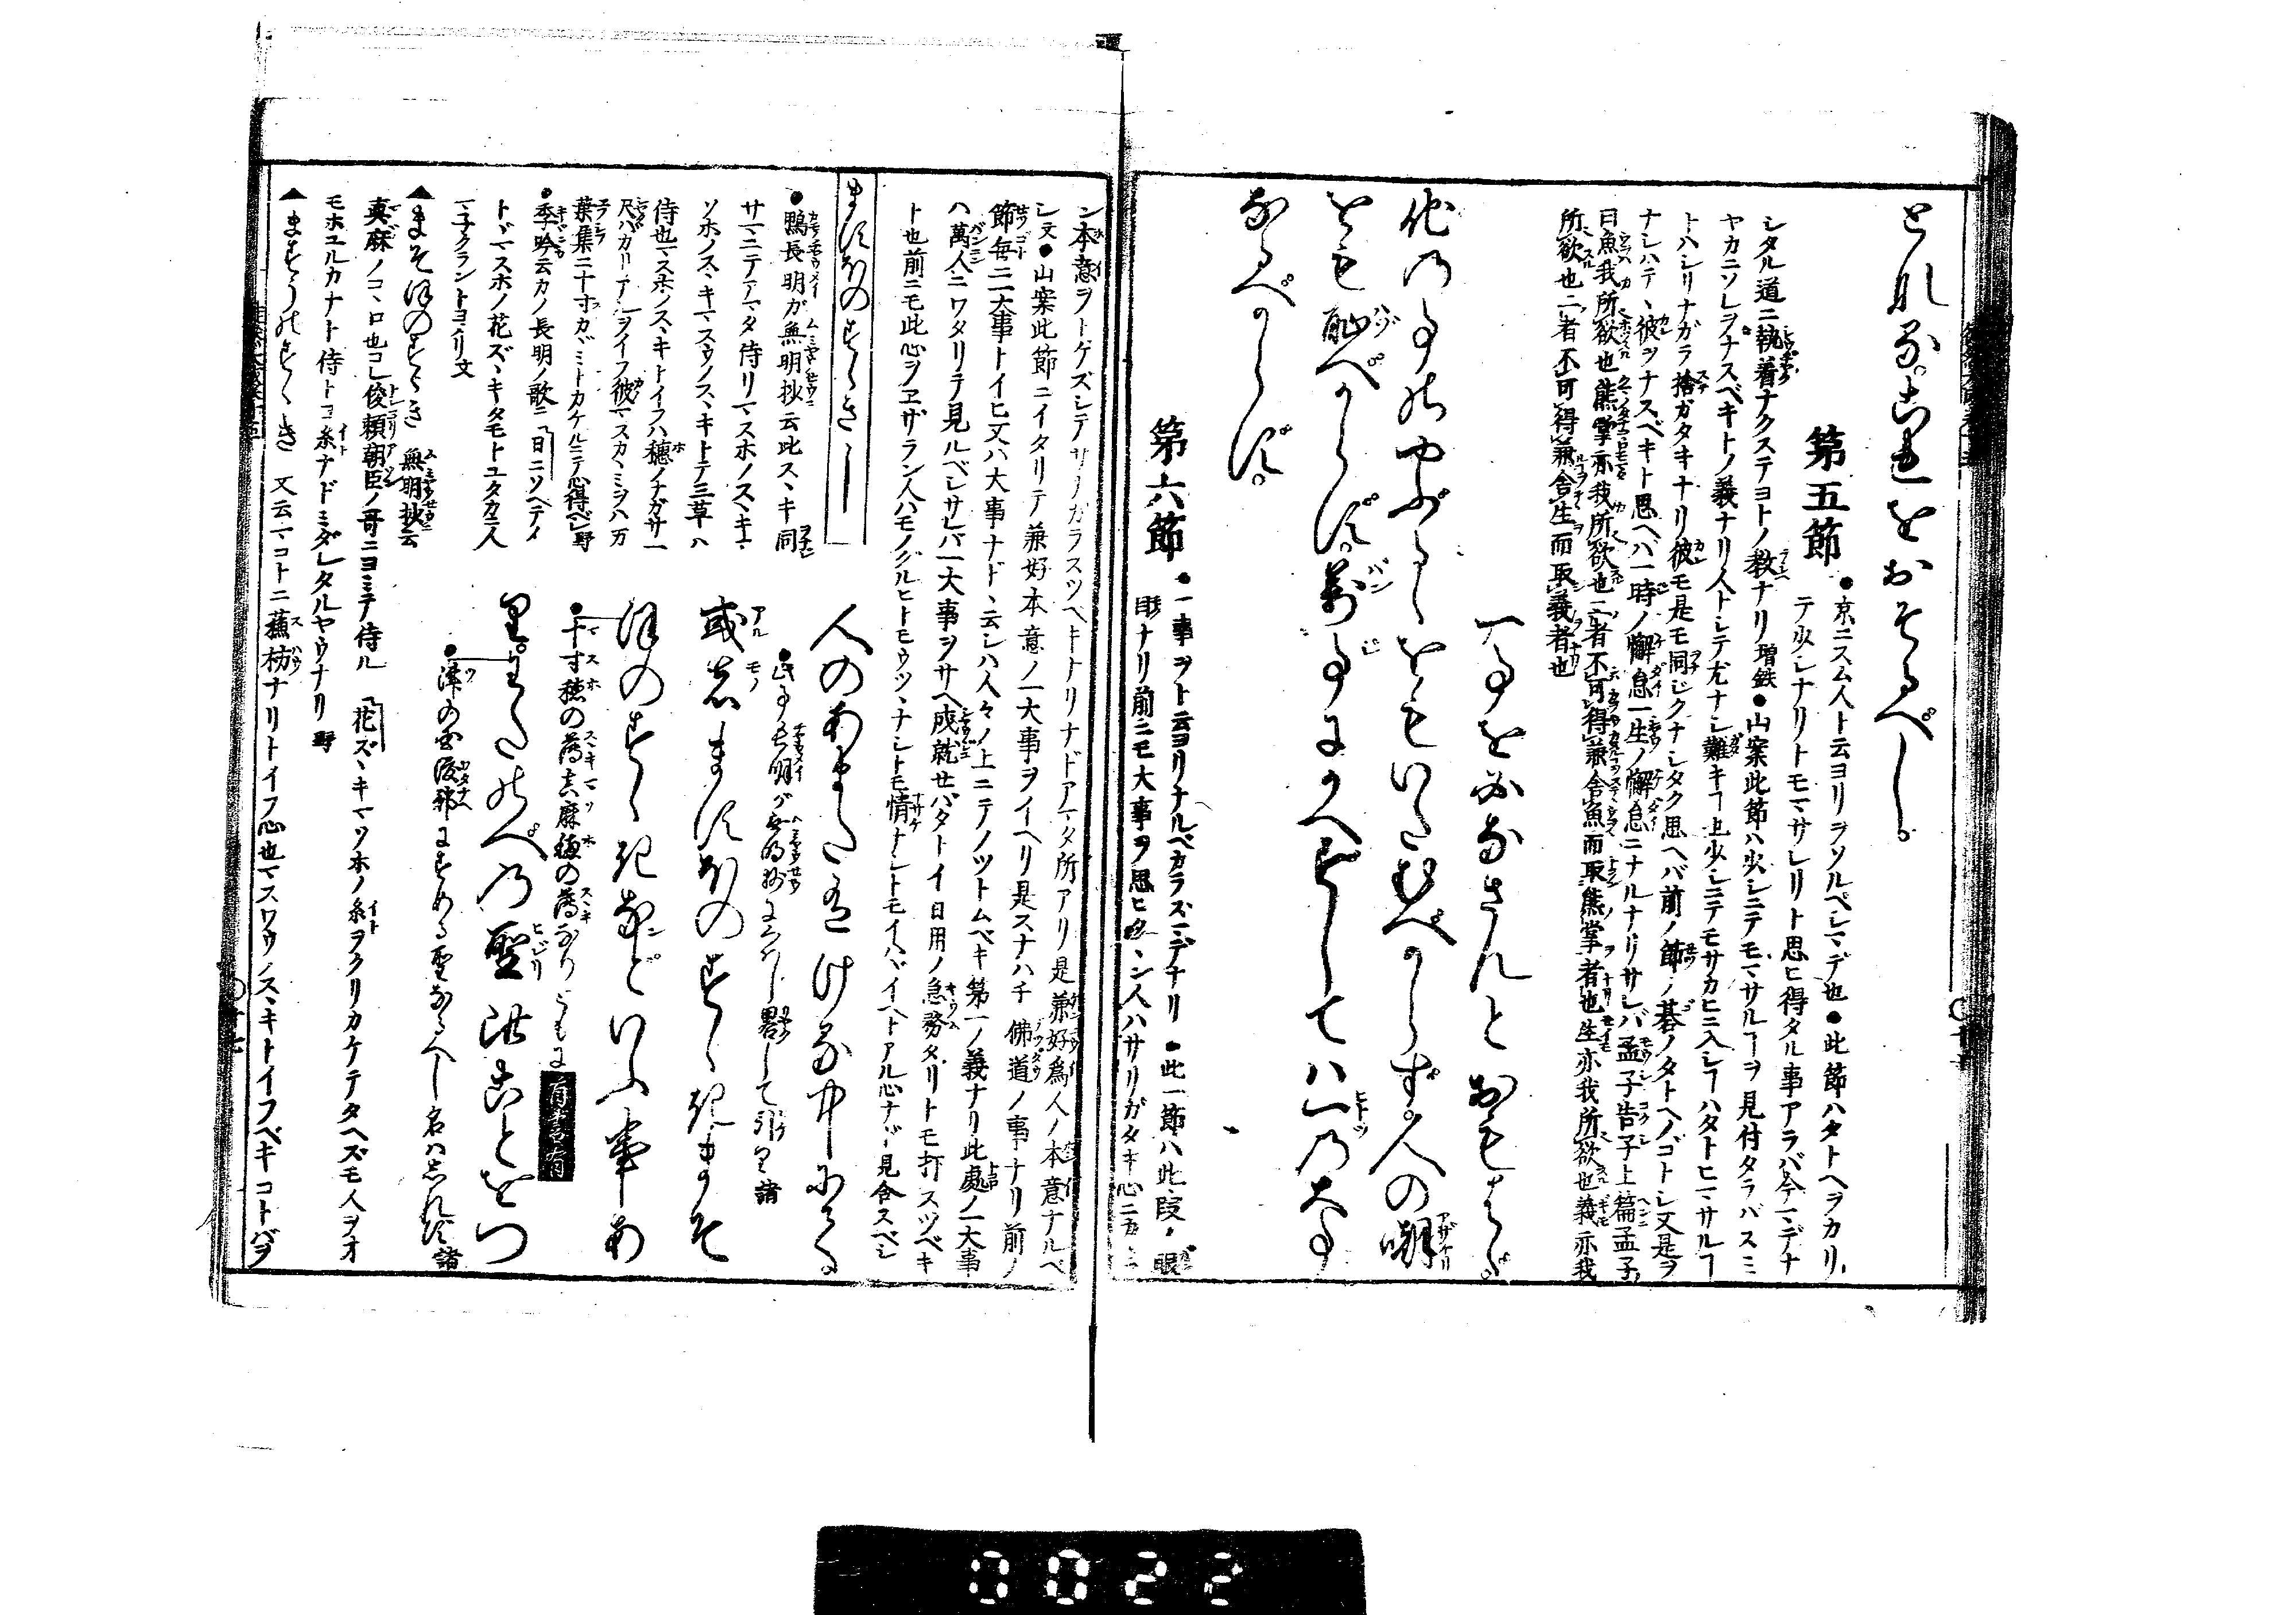 とれる。これをおそるべし。
第五節
●京ニスム人ト云ヨリヲソルベシマデ也●此節ハタトヘヲカリ
テ少シナリトモマサレリト思ヒ得タル事アラバ今マデナ
シタル道ニ執着ナクステヨトノ教ナリ増鉄●山案此節ハ少シニテモマサルヿヲ見付タラバスミ
ヤカニソレヲナスベキトノ義ナリ人トシテ尤ナシ難キヿ也少シニテモサカヒニ入シヿハタトヒマサルヿ
トハシリナガラ捨ガタキナリ彼モ是モ同ジクナシタク思ヘバ前ノ節ノ碁ノタトヘノゴトシ又是ヲ
ナシハテヽ彼ヲナスベキト思ヘバ一時ノ懈怠一生ノ懈怠ニナルナリサレバ孟子告子上篇孟子
曰魚我所欲也熊掌亦我所欲也二者不可得兼舎魚而取熊掌者也生亦我所欲也義亦我
所欲也二者不可得兼舎生而取義者也
一事を必なさんとおもはゞ。
他の事のやぶるゝをもいたむべからず。人の嘲
をも恥べからず。萬事にかへずしては一の大事
なるべからず。
第六節
●一事ヲト云ヨリナルベカラズマデナリ●此一節ハ此段ノ眼
目ナリ前ニモ大事ヲ思ヒタヽン人ハサリガタキ心ニカヽラ
ン本意ヲトゲズシテサナガラスツベキナリナドアマタ所アリ是兼好為人ノ本意ナルベ
シ文●山案此節ニイタリテ兼好本意ノ一大事ヲイヘリ是スナハチ佛道ノ事ナリ前ノ
節毎ニ一大事トイヒ又ハ大事ナドヽ云シハ人々ノ上ニテノツトムベキ第一ノ義ナリ此處ノ一大事
ハ萬人ニワタリテ見ルベシサレバ一大事ヲサヘ成就セバタトイ日用ノ急務タリトモ打スツベキ
ト也前ニモ此心ヲヱザラン人ハモノグルヒトモウツヽナシトモ情ナシトモイハヾイヘトアル心ナド見合スベシ
ますほのすゝき
●鴨長明が無明抄云此スヽキ同
サマニテアマタ侍リマスホノスヽキマ
ソホノスヽキマスウノスヽキトテ三草ハ
侍也マスホノスヽキトイフハ穂ノナガサ一
尺バカリアルヲイフ彼マスカヽミヲハ万
葉集ニ十寸カヾミトカケルニテ心得ベシ野
●季吟云カノ長明ノ歌ニ日ニソヘテメ
トヾマスホノ花ズヽキタモトユタカニ人
マネクラントヨメリ文
▲まそほのすゝき 無明抄云
真麻ノコヽロ也コレ俊頼朝臣ノ哥ニヨミテ侍ル 花ズヽキマソホノ糸ヲクリカケテタヘズモ人ヲオ
モホユルカナト侍トヨ糸ナドミダレタルヤウナリ 野
▲ますうのすゝき 又云マコトニ蘓枋ナリトイフ心也マスワウノスヽキトイフベキコトバヲ
人のあまた有ける中にてある
●此事長明が無明抄にみえし畧して引り諸
或者ますほのすゝきまそ
ほのすゝきなどいふ事あ
●十寸穂の薄真麻穂の薄なり
り。わたのべの聖此ことをつ
●津の国渡邊にすめる聖なるべし名ハしれず諸
0022